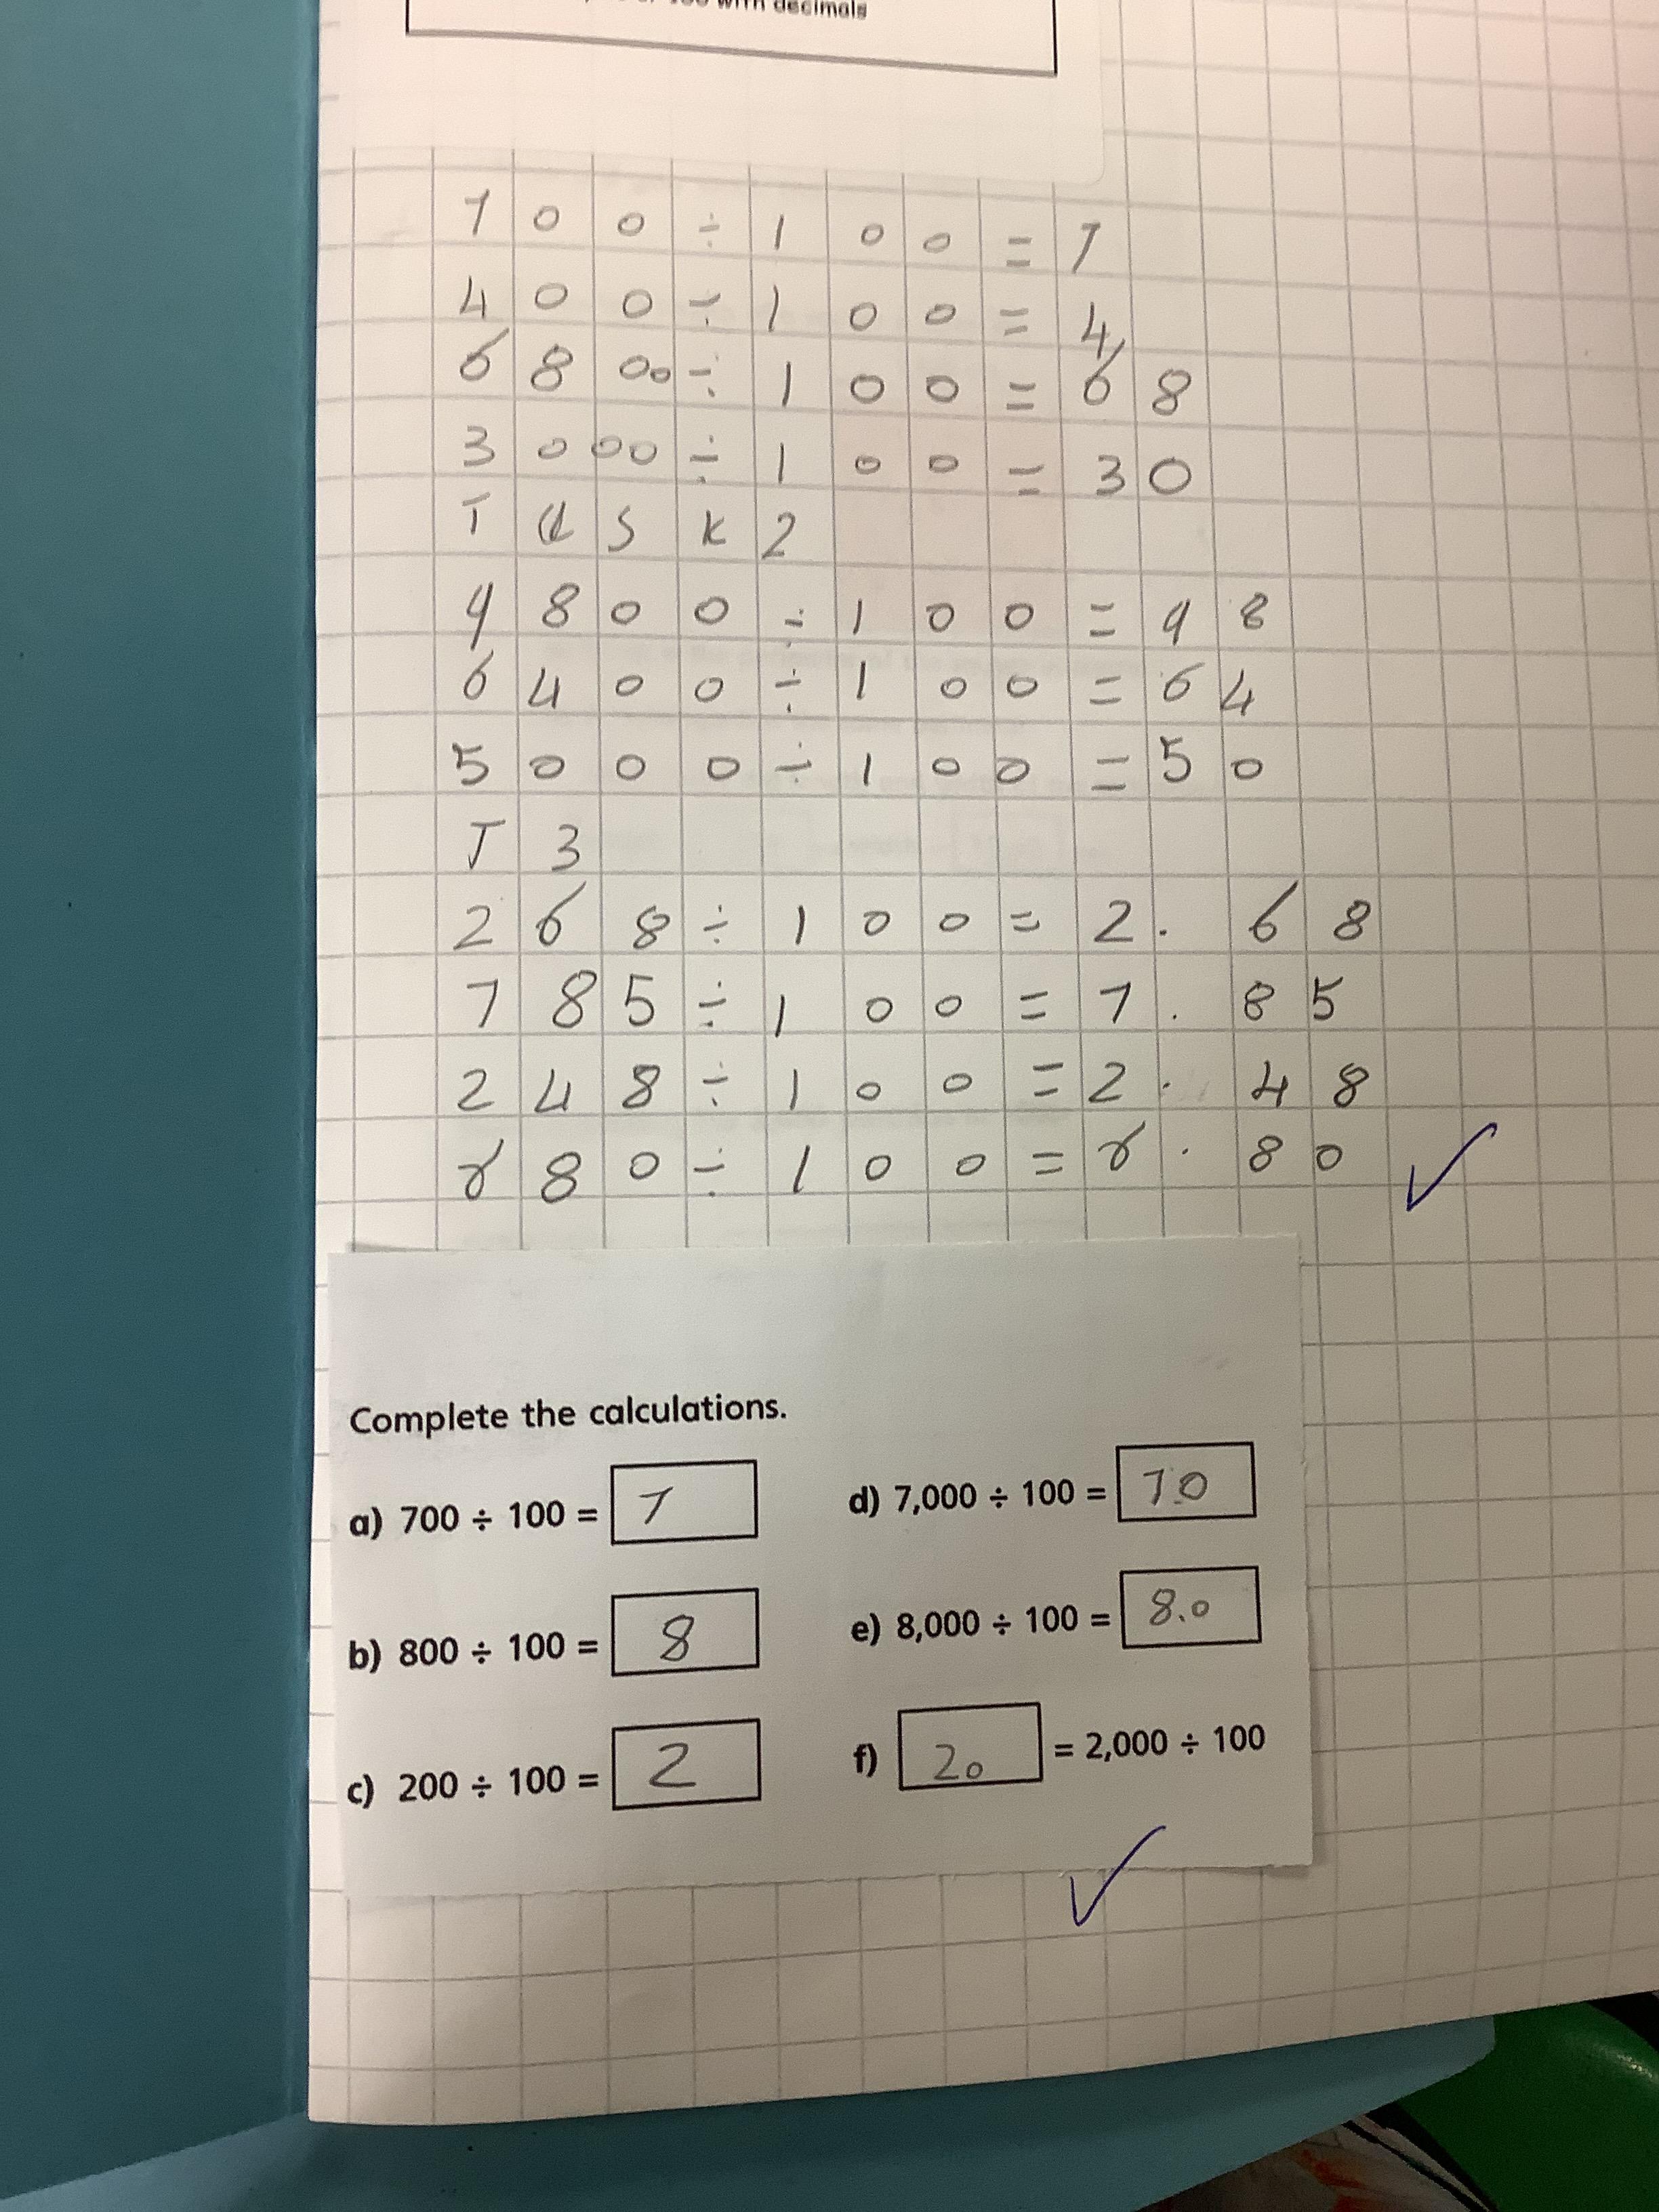 with decimals
700 ÷ 100 = 7
400 ÷ 100 = 4
6800 ÷ 100 = 68
3000 ÷ 100 = 30
Task 2
9800 ÷ 100 = 98
6400 ÷ 100 = 64
5000 ÷ 100 = 50
T 3
268 ÷ 100 = 2.68
785 ÷ 100 = 7.85
248 ÷ 100 = 2.48
880 ÷ 100 = 8.80
Complete the calculations.
a) 700 ÷ 100 = 7
d) 7,000 ÷ 100 = 70
b) 800 ÷ 100 = 8
e) 8,000 ÷ 100 = 8.0
c) 200 ÷ 100 = 2
f) 20 = 2,000 ÷ 100